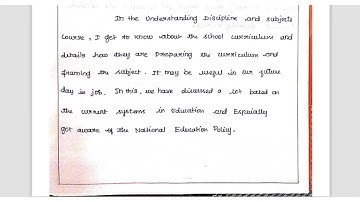 In the Understanding Discipline and Subjects
Course, I get to know about the school curriculum and
details how they are preparing the curriculum and
framing the subject. It may be useful in our future
day in job. In this, we have discussed a lot based on
the current systems in Education and Especially
got aware of the National Education Policy.